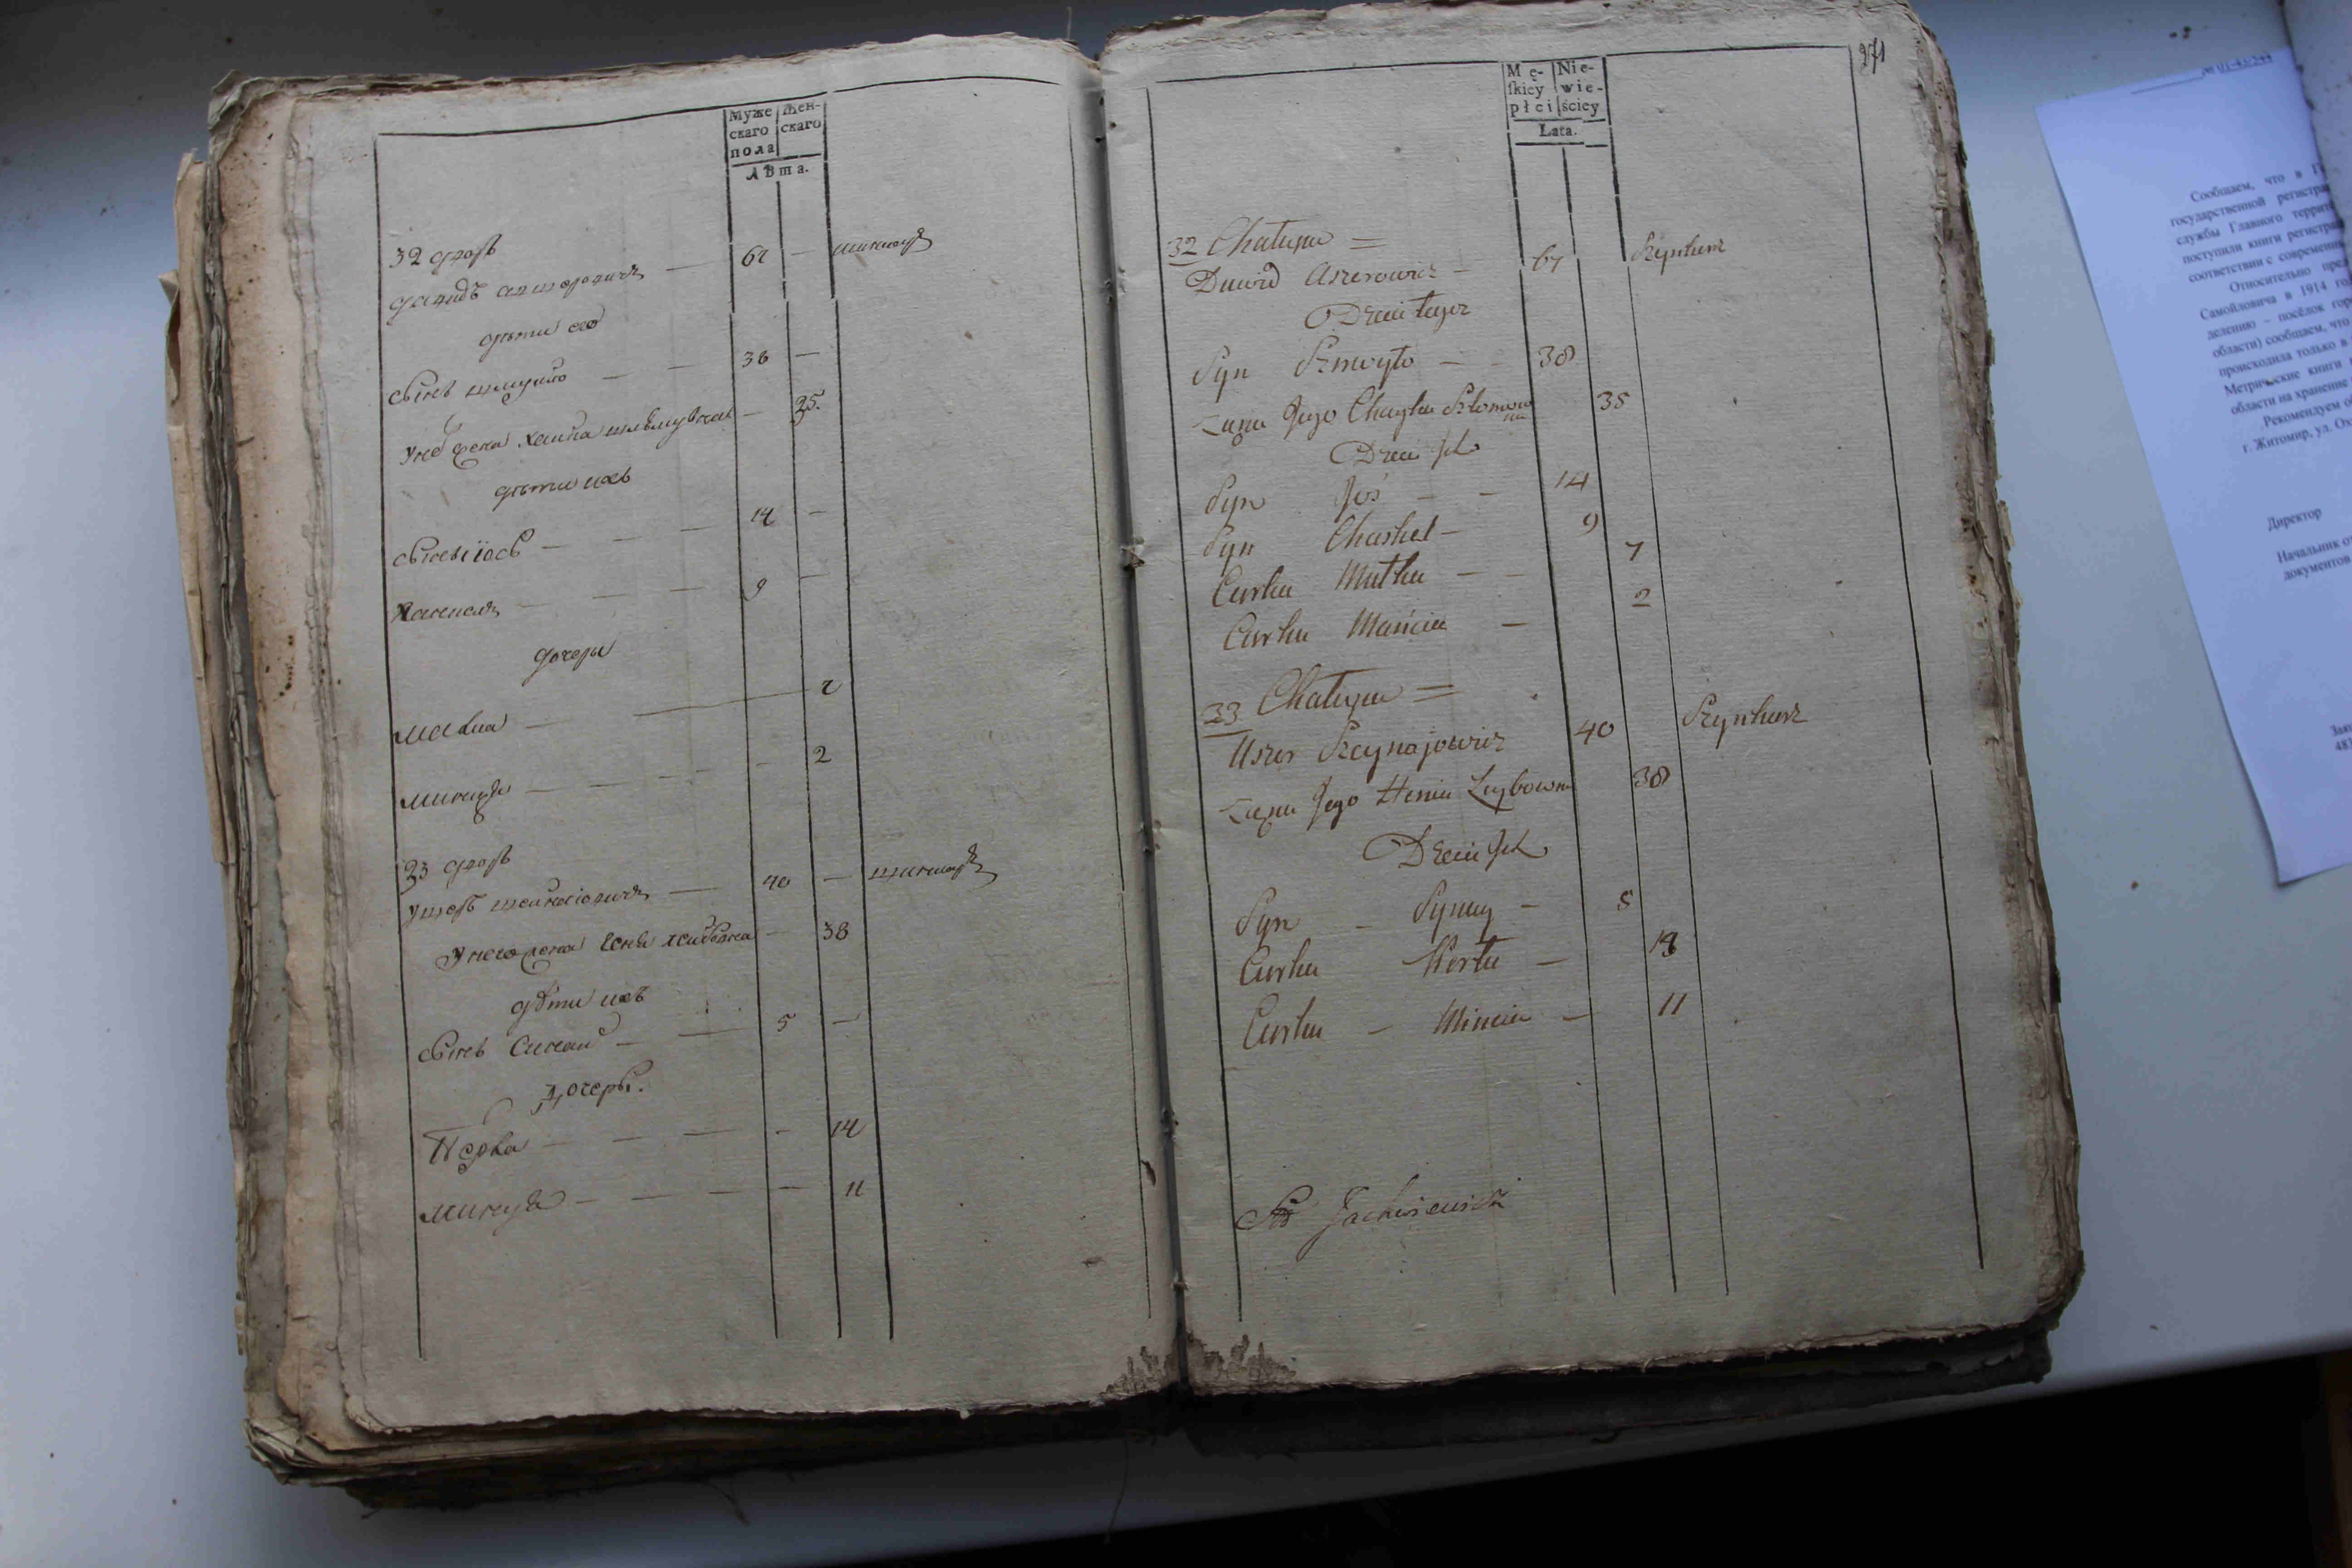 Муже
скаго
пола
Жен-
скаго
лѣта.
32 дворъ
давидъ ашеровичъ — 67 — шинкарь
дѣти его
сынъ шмуило — — 38 —
У него жена хаика шлёмувна — 35.
дѣти ихъ
сынъ іось — — — 14 —
Хаскель — — — 9 —
дочери
малка — 7
минця — — — — 2
33 дворъ
Ушеръ шеинаіовичъ — 40 — шинкарь
У него жена Геня лейбовна — 38
дѣти ихъ
сынъ Синай — — 5 —
Дочери.
Перла — — — — 14
минця — — — — 11
971
Mę-
skiey
płci
Nie-
wie-
ściey
Lata.
32 Chałupa =
Dawid Aszerowicz — 67 Szynkarz
Dzieci tegoz
Syn Szmoyło — — 38
Zona Jego Chayka Szlomowna 35
Dzieci Ich
Syn Joś — — 14
Syn Chaskel — 9
Curka Małka — — 7
Curka Mańcia — 2
33 Chałupa =
Uszer Szeynajowicz 40 Szynkarz
Zona Jego Henia Leybowna 38
Dzieci Ich
Syn — Synay — 5
Curka Perla — 14
Curka — Mincia — 11
Jackiewicz
№ 01-43/544
Сообщаем, что в
государственной регистра
службы Главного террито
поступили книги регистра
соответствии с современн
Относительно пред
Самойловича в 1914 го
делению – посёлок го
области) сообщаем, что
происходила только в
Метрические книги
области на хранение
Рекомендуем об
г. Житомир, ул. Ох
Директор
Начальник от
документов